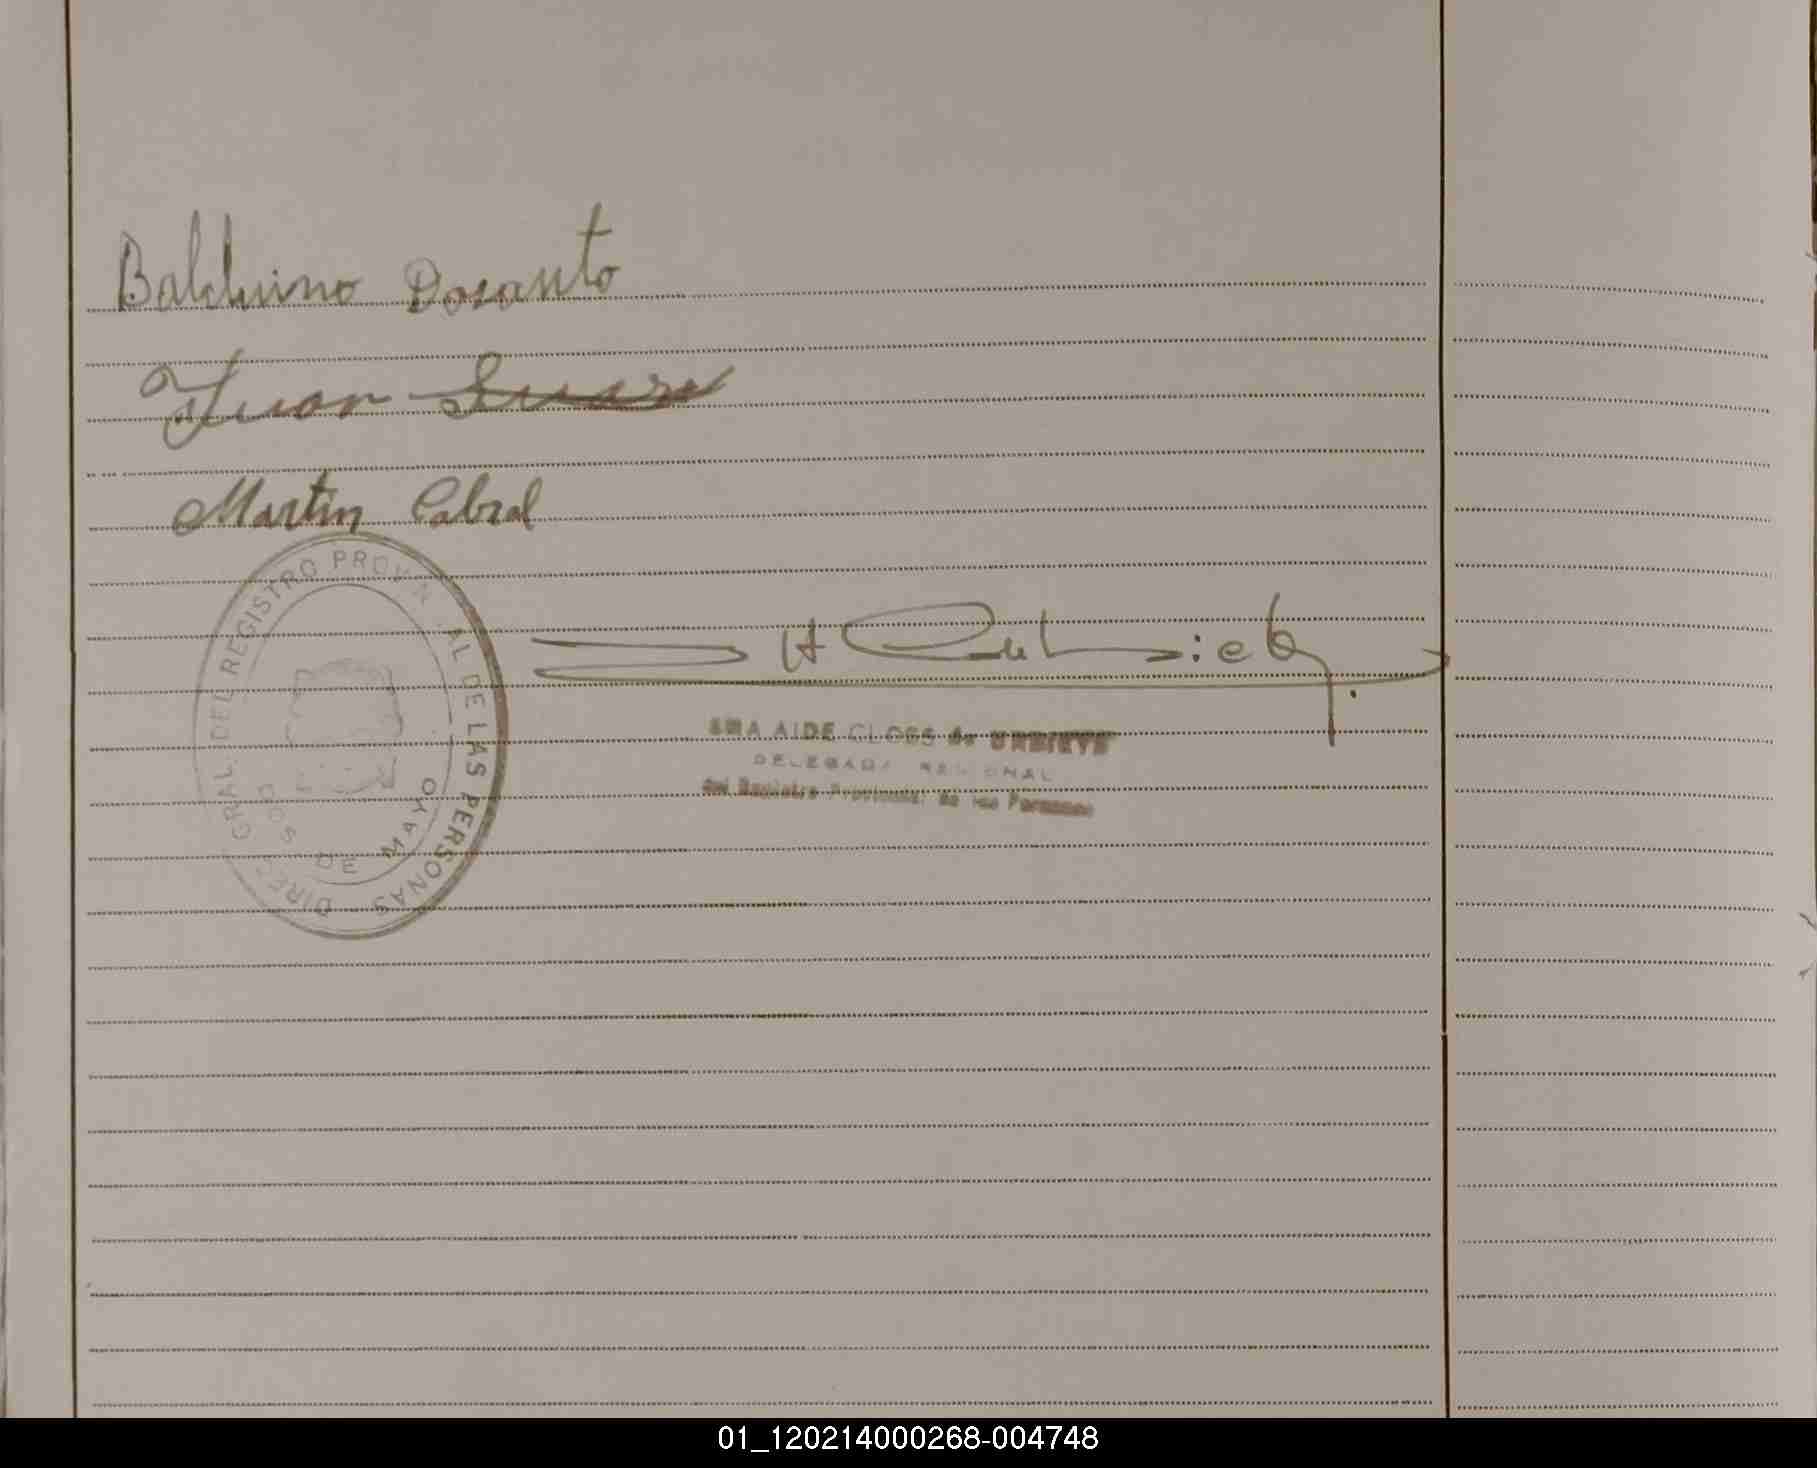 Balduino Dosanto
Juan Suarez
Martin Cabral
DIREC. GRAL. DEL REGISTRO PROVIN AL DE LAS PERSONAS
DOS DE MAYO
SRA AIDE CLOSS de URBIETA
DELEGADA REGIONAL
del Registro Provincial de las Personas
01_120214000268-004748